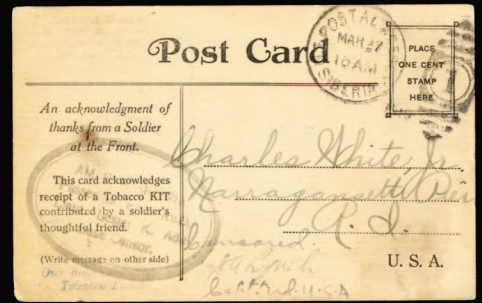 Post Card
POSTAL
MAR 27
10 AM
SIBERIA
PLACE
ONE CENT
STAMP
HERE
An acknowledgment of
thanks from a Soldier
at the Front.
This card acknowledges
receipt of a Tobacco KIT
contributed by a soldier's
thoughtful friend.
(Write message on other side)
Our
Tobacco
Censor.
Charles White Jr.
Narragansett Pier
R. I.
Censored.
U. S. A.
Capt. U.S.A